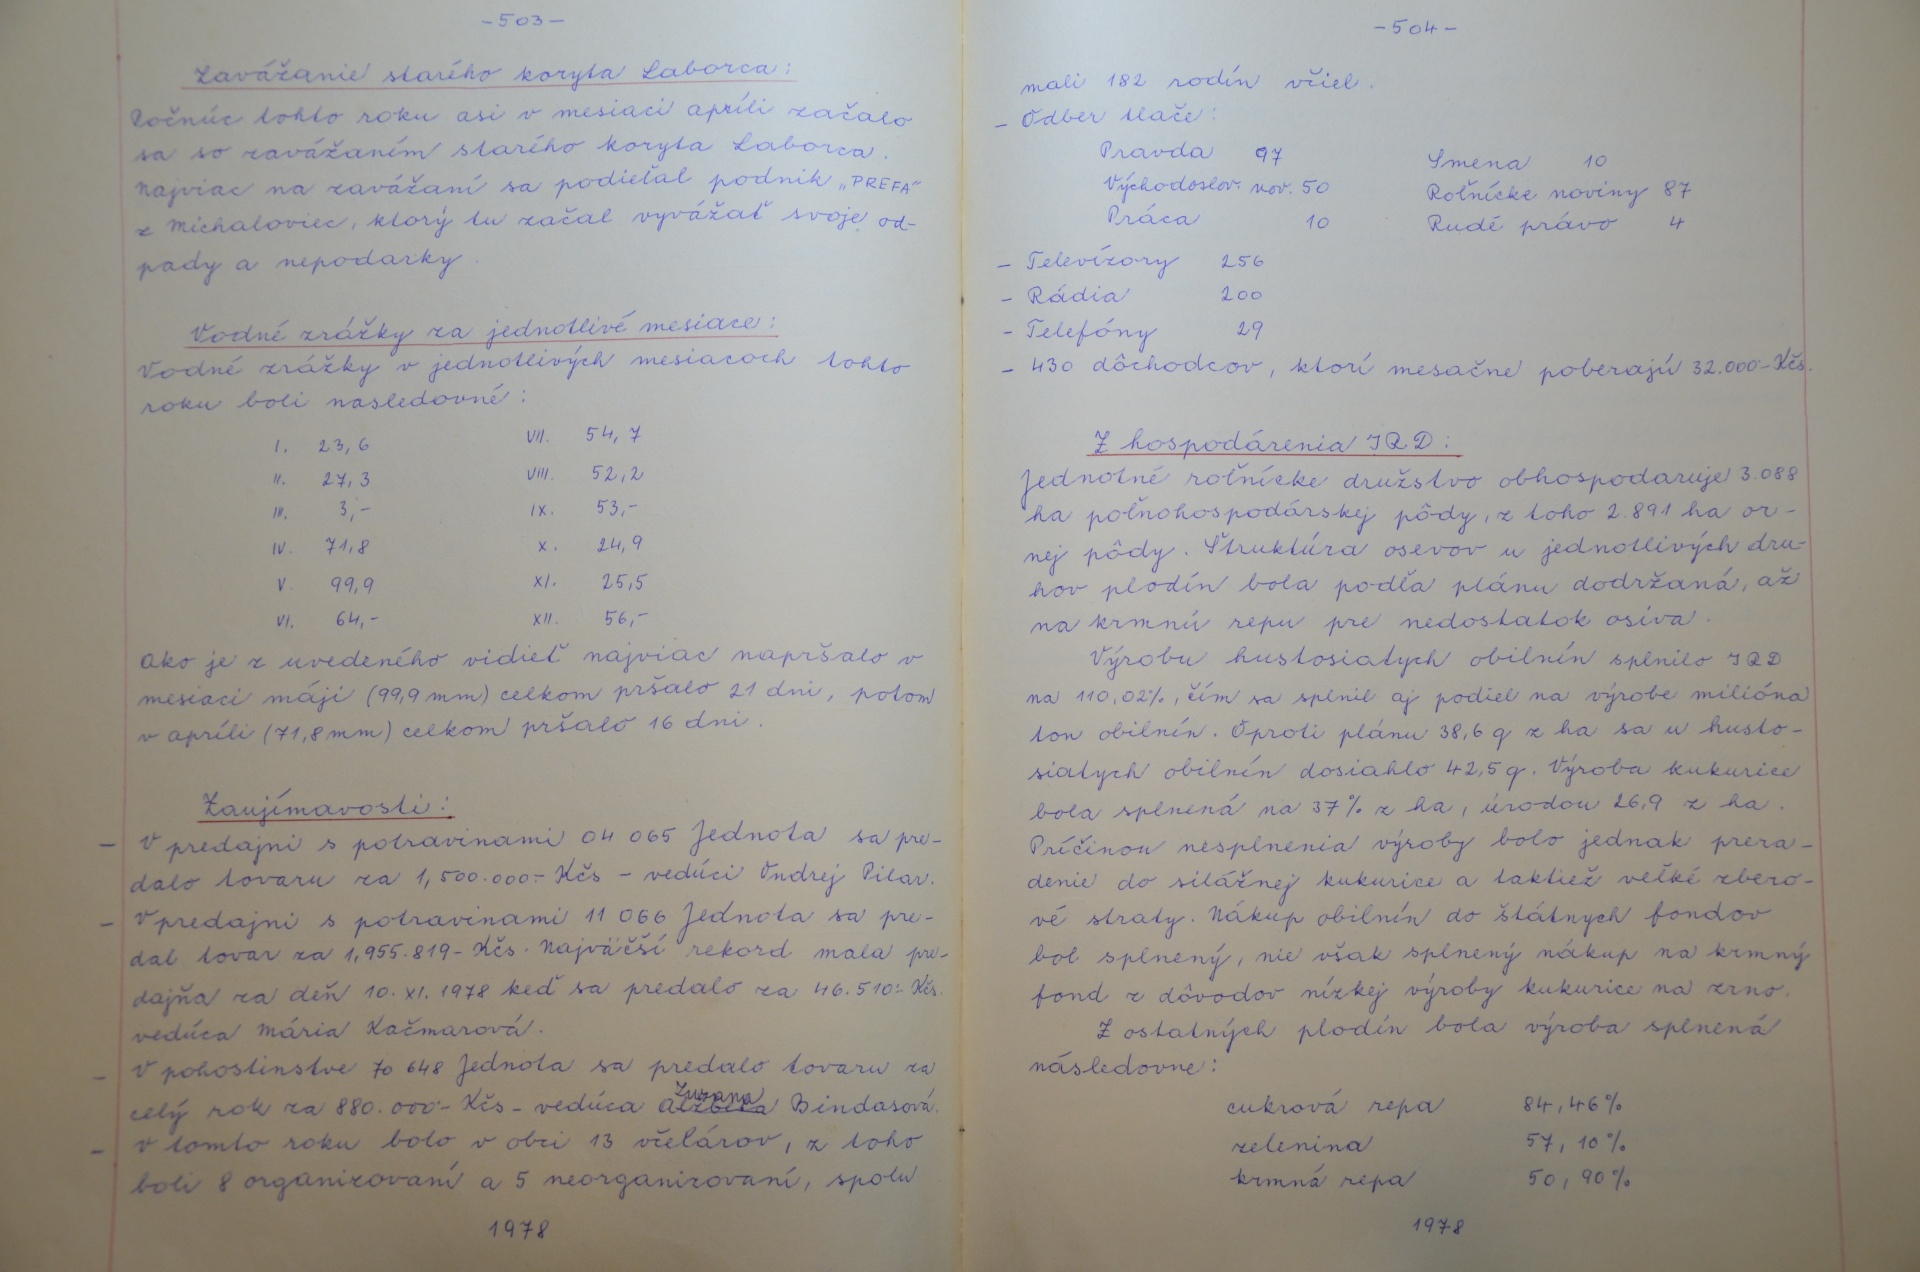 -503-
Zavážanie starého koryta Laborca:
Počnúc tohto roku asi v mesiaci apríli začalo
sa so zavážaním starého koryta Laborca.
Najviac na zavážaní sa podieľal podnik „PREFA"
z Michaloviec, ktorý tu začal vyvážať svoje od-
pady a nepodarky.
Vodné zrážky za jednotlivé mesiace:
Vodné zrážky v jednotlivých mesiacoch tohto
roku boli nasledovné:
I. 23,6 VII. 54,7
II. 27,3 VIII. 52,2
III. 3,- IX. 53,-
IV. 71,8 X. 24,9
V. 99,9 XI. 25,5
VI. 64,- XII. 56,-
Ako je z uvedeného vidieť najviac napršalo v
mesiaci máji (99,9 mm) celkom pršalo 21 dni, potom
v apríli (71,8 mm) celkom pršalo 16 dni.
Zaujímavosti:
- V predajni s potravinami 04 065 Jednota sa pre-
dalo tovaru za 1,500.000.- Kčs - vedúci Ondrej Pilar.
- V predajni s potravinami 11 066 Jednota sa pre-
dal tovar za 1,955.819- Kčs. Najväčší rekord mala pre-
dajňa za deň 10. XI. 1978 keď sa predalo za 46.510.- Kčs.
vedúca Mária Kačmarová.
- V pohostinstve 70 648 Jednota sa predalo tovaru za
celý rok za 880.000.- Kčs - vedúca Alžbeta Zuzana Bindasová.
- V tomto roku bolo v obci 13 včelárov, z toho
boli 8 organizovaní a 5 neorganizovaní, spolu
1978
-504-
mali 182 rodín včiel.
- Odber tlače:
Pravda 97 Smena 10
Východoslov. nov. 50 Roľnícke noviny 87
Práca 10 Rudé právo 4
- Televízory 256
- Rádia 200
- Telefóny 29
- 430 dôchodcov, ktorí mesačne poberajú 32.000- Kčs.
Z hospodárenia JRD:
Jednotné roľnícke družstvo obhospodaruje 3.088
ha poľnohospodárskej pôdy, z toho 2.891 ha or-
nej pôdy. Štruktúra osevov u jednotlivých dru-
hov plodín bola podľa plánu dodržaná, až
na krmnú repu pre nedostatok osiva.
Výrobu hustosiatych obilnín splnilo JRD
na 110,02%, čím sa splnil aj podiel na výrobe milióna
ton obilnín. Oproti plánu 38,6 q z ha sa u husto-
siatych obilnín dosiahlo 42,5 q. Výroba kukurice
bola splnená na 37% z ha, úrodou 26,9 z ha.
Príčinou nesplnenia výroby bolo jednak prera-
denie do silážnej kukurice a taktiež veľké zbero-
vé straty. Nákup obilnín do štátnych fondov
bol splnený, nie však splnený nákup na krmný
fond z dôvodov nízkej výroby kukurice na zrno.
Z ostatných plodín bola výroba splnená
následovne:
cukrová repa 84,46%
zelenina 57,10%
krmná repa 50,90%
1978